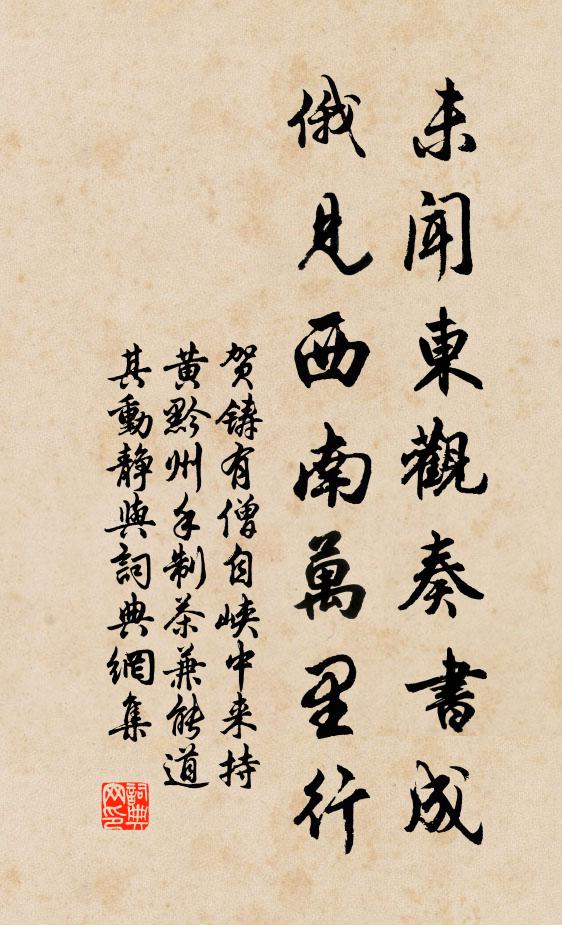 未聞東觀奏書成
俄見西南萬里行
贺鑄有僧自峡中来持
黄黔州手制茶兼能道
其動靜與詞典網集
詞典
网印